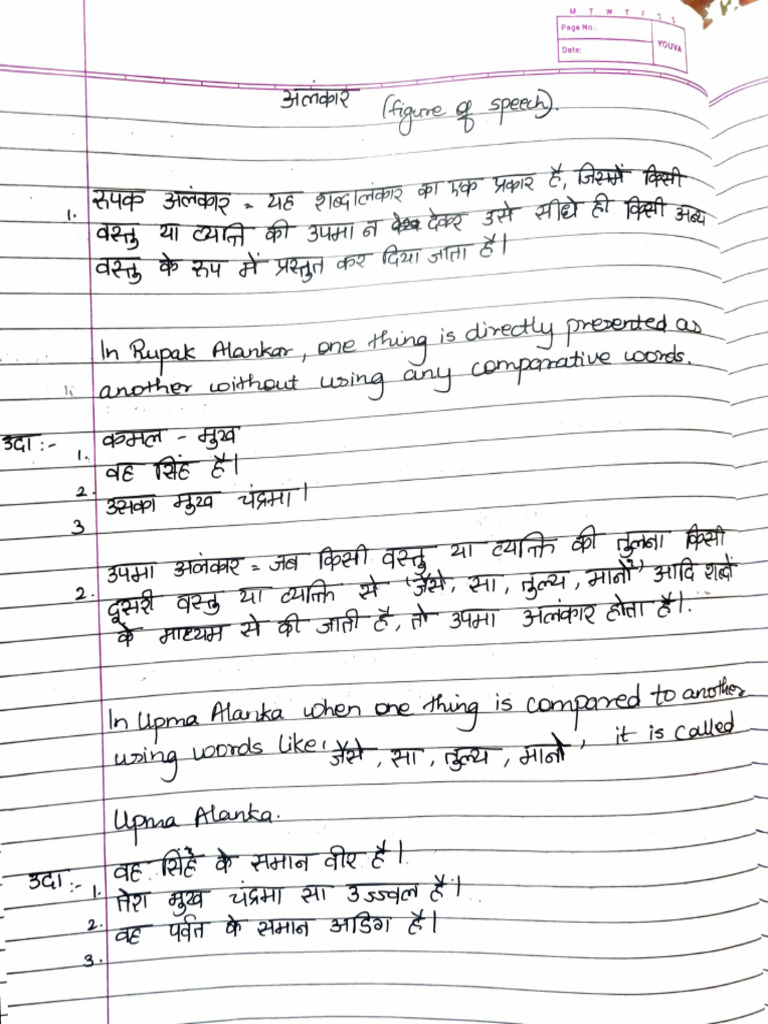 M T W T F S S
Page No.:
Date:
YOUVA
अलंकार (figure of speech).
1. रुपक अलंकार = यह शब्दालंकार का एक प्रकार है, जिसमें किसी
वस्तु या व्यक्ति की उपमा न देकर उसे सीधे ही किसी अन्य
वस्तु के रुप में प्रस्तुत कर दिया जाता है।
In Rupak Alankar, one thing is directly presented as
another without using any comparative words.
उदा :- 1. कमल - मुख
2. वह सिंह है।
3 उसका मुख चंद्रमा।
2. उपमा अलंकार = जब किसी वस्तु या व्यक्ति की तुलना किसी
दूसरी वस्तु या व्यक्ति से 'जैसे, सा, तुल्य, मानो' आदि शब्दों
के माध्यम से की जाती है, तो उपमा अलंकार होता है।
In Upma Alanka when one thing is compared to another
using words like, जैसे, सा, तुल्य, मानो' it is called
Upma Alanka.
उदा :- 1. वह सिंह के समान वीर है।
2. तेरा मुख चंद्रमा सा उज्ज्वल है।
3. वह पर्वत के समान अडिग है।